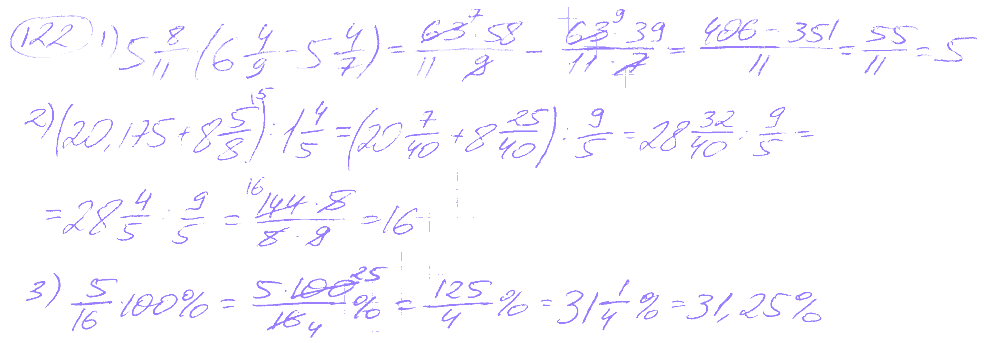 122 1) 5 8/11 (6 4/9 - 5 4/7) = 63⁷·58/11·9 - 63⁹·39/11·7 = 406-351/11 = 55/11 = 5
2) (20,175 + 8 5/8) : 1 4/5 = (20 7/40 + 8 25/40) : 9/5 = 28 32/40 : 9/5 =
= 28 4/5 : 9/5 = ¹⁶144·5/5·9 = 16
3) 5/16 · 100% = 5·100²⁵/16₄ % = 125/4 % = 31 1/4 % = 31,25%